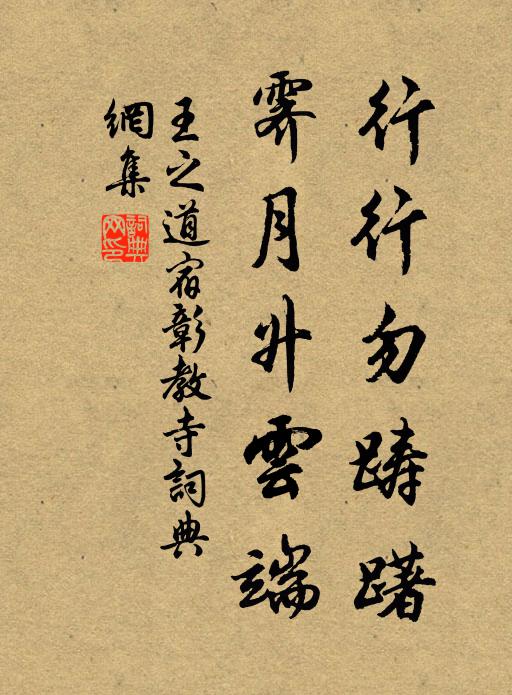 行行勿踌躇
霁月升雲端
王之道宿彰教寺詞典
網集
詞典
网印